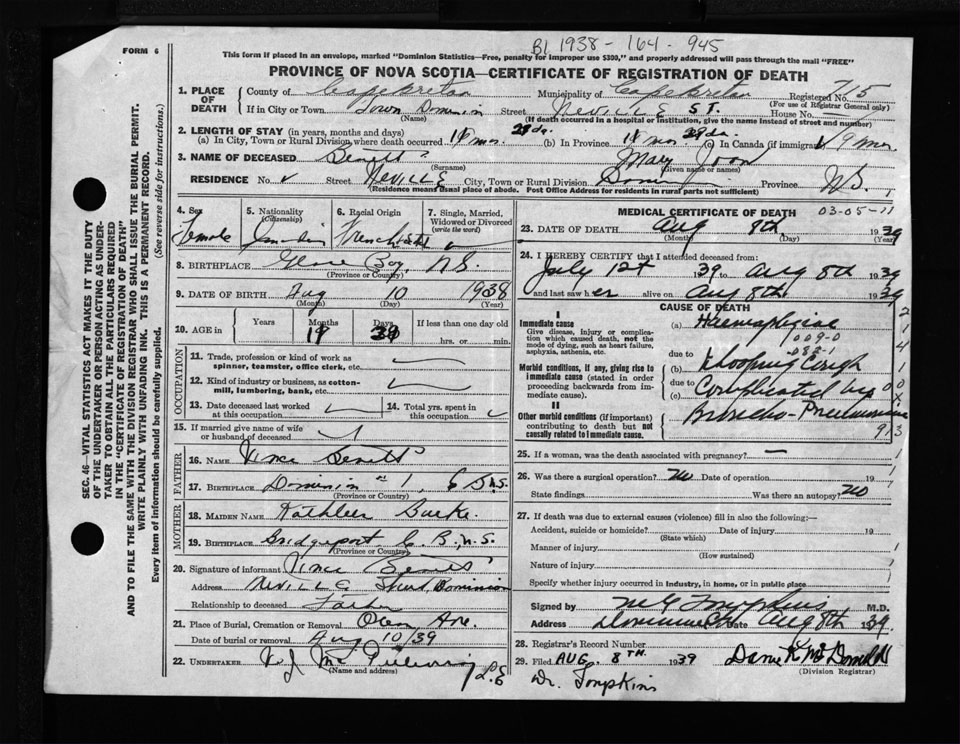 B1 1938 - 164 - 945
FORM 6
This form if placed in an envelope, marked "Dominion Statistics—Free, penalty for improper use $300," and properly addressed will pass through the mail "FREE"
PROVINCE OF NOVA SCOTIA—CERTIFICATE OF REGISTRATION OF DEATH
1. PLACE OF DEATH County of Cape Breton Municipality of Cape Breton Registered No. 75
(For use of Registrar General only)
If in City or Town Town Dominion Street NEVILLE ST. House No.
(Name) (If death occurred in a hospital or institution, give the name instead of street and number)
2. LENGTH OF STAY (in years, months and days)
(a) In City, Town or Rural Division where death occurred 11 mos. 29 da. (b) In Province 11 mos. 29 da. (c) In Canada (if immigrant)
3. NAME OF DECEASED Mary Joan
(Surname) (Given name or names)
RESIDENCE No. Street NEVILLE City, Town or Rural Division Dominion Province N.S.
(Residence means usual place of abode. Post Office Address for residents in rural parts not sufficient)
4. Sex Female
5. Nationality (Citizenship) Canadian
6. Racial Origin French
7. Single, Married, Widowed or Divorced (write the word)
8. BIRTHPLACE Glace Bay, N.S.
(Province or Country)
9. DATE OF BIRTH Aug 10 1938
(Month) (Day) (Year)
10. AGE in Years Months Days If less than one day old
hrs. or min.
OCCUPATION
11. Trade, profession or kind of work as spinner, teamster, office clerk, etc.
12. Kind of industry or business, as cotton-mill, lumbering, bank, etc.
13. Date deceased last worked at this occupation
14. Total yrs. spent in this occupation
15. If married give name of wife or husband of deceased
FATHER
16. Name Vince
17. Birthplace Dominion C.B. N.S.
(Province or Country)
MOTHER
18. MAIDEN NAME Kathleen Burke
19. BIRTHPLACE Bridgeport C.B., N.S.
(Province or Country)
20. Signature of informant Vince
Address NEVILLE Street, Dominion
Relationship to deceased Father
21. Place of Burial, Cremation or Removal
Date of burial or removal Aug 10/39
22. UNDERTAKER V J
(Name and address)
MEDICAL CERTIFICATE OF DEATH 03-05-11
23. DATE OF DEATH Aug 9th 1939
(Month) (Day) (Year)
24. I HEREBY CERTIFY that I attended deceased from:
July 12t 1939 to Aug 8th 1939
and last saw her alive on Aug 8th 1939
CAUSE OF DEATH
I
Immediate cause
Give disease, injury or complication which caused death, not the mode of dying, such as heart failure, asphyxia, asthenia, etc.
(a)
009-0
085-1
Morbid conditions, if any, giving rise to immediate cause (stated in order proceeding backwards from immediate cause).
due to (b) Whooping Cough
due to (c) Complicated by
Broncho-Pneumonia
II
Other morbid conditions (if important) contributing to death but not causally related to immediate cause.
25. If a woman, was the death associated with pregnancy? —
26. Was there a surgical operation? No Date of operation 19
State findings Was there an autopsy? No
27. If death was due to external causes (violence) fill in also the following:—
Accident, suicide or homicide? Date of injury 19
(State which)
Manner of injury
(How sustained)
Nature of injury
Specify whether injury occurred in industry, in home, or in public place
Signed by M G Tompkins M.D.
Address Dominion Date Aug 8th 1939
28. Registrar's Record Number
29. Filed AUG. 8TH 1939
(Division Registrar)
Dr. Tompkins
SEC. 46—VITAL STATISTICS ACT MAKES IT THE DUTY OF THE UNDERTAKER OR PERSON ACTING AS UNDERTAKER TO OBTAIN ALL THE PARTICULARS REQUIRED IN THE "CERTIFICATE OF REGISTRATION OF DEATH" AND TO FILE THE SAME WITH THE DIVISION REGISTRAR WHO SHALL ISSUE THE BURIAL PERMIT.
WRITE PLAINLY WITH UNFADING INK. THIS IS A PERMANENT RECORD.
Every item of Information should be carefully supplied. (See reverse side for instructions.)